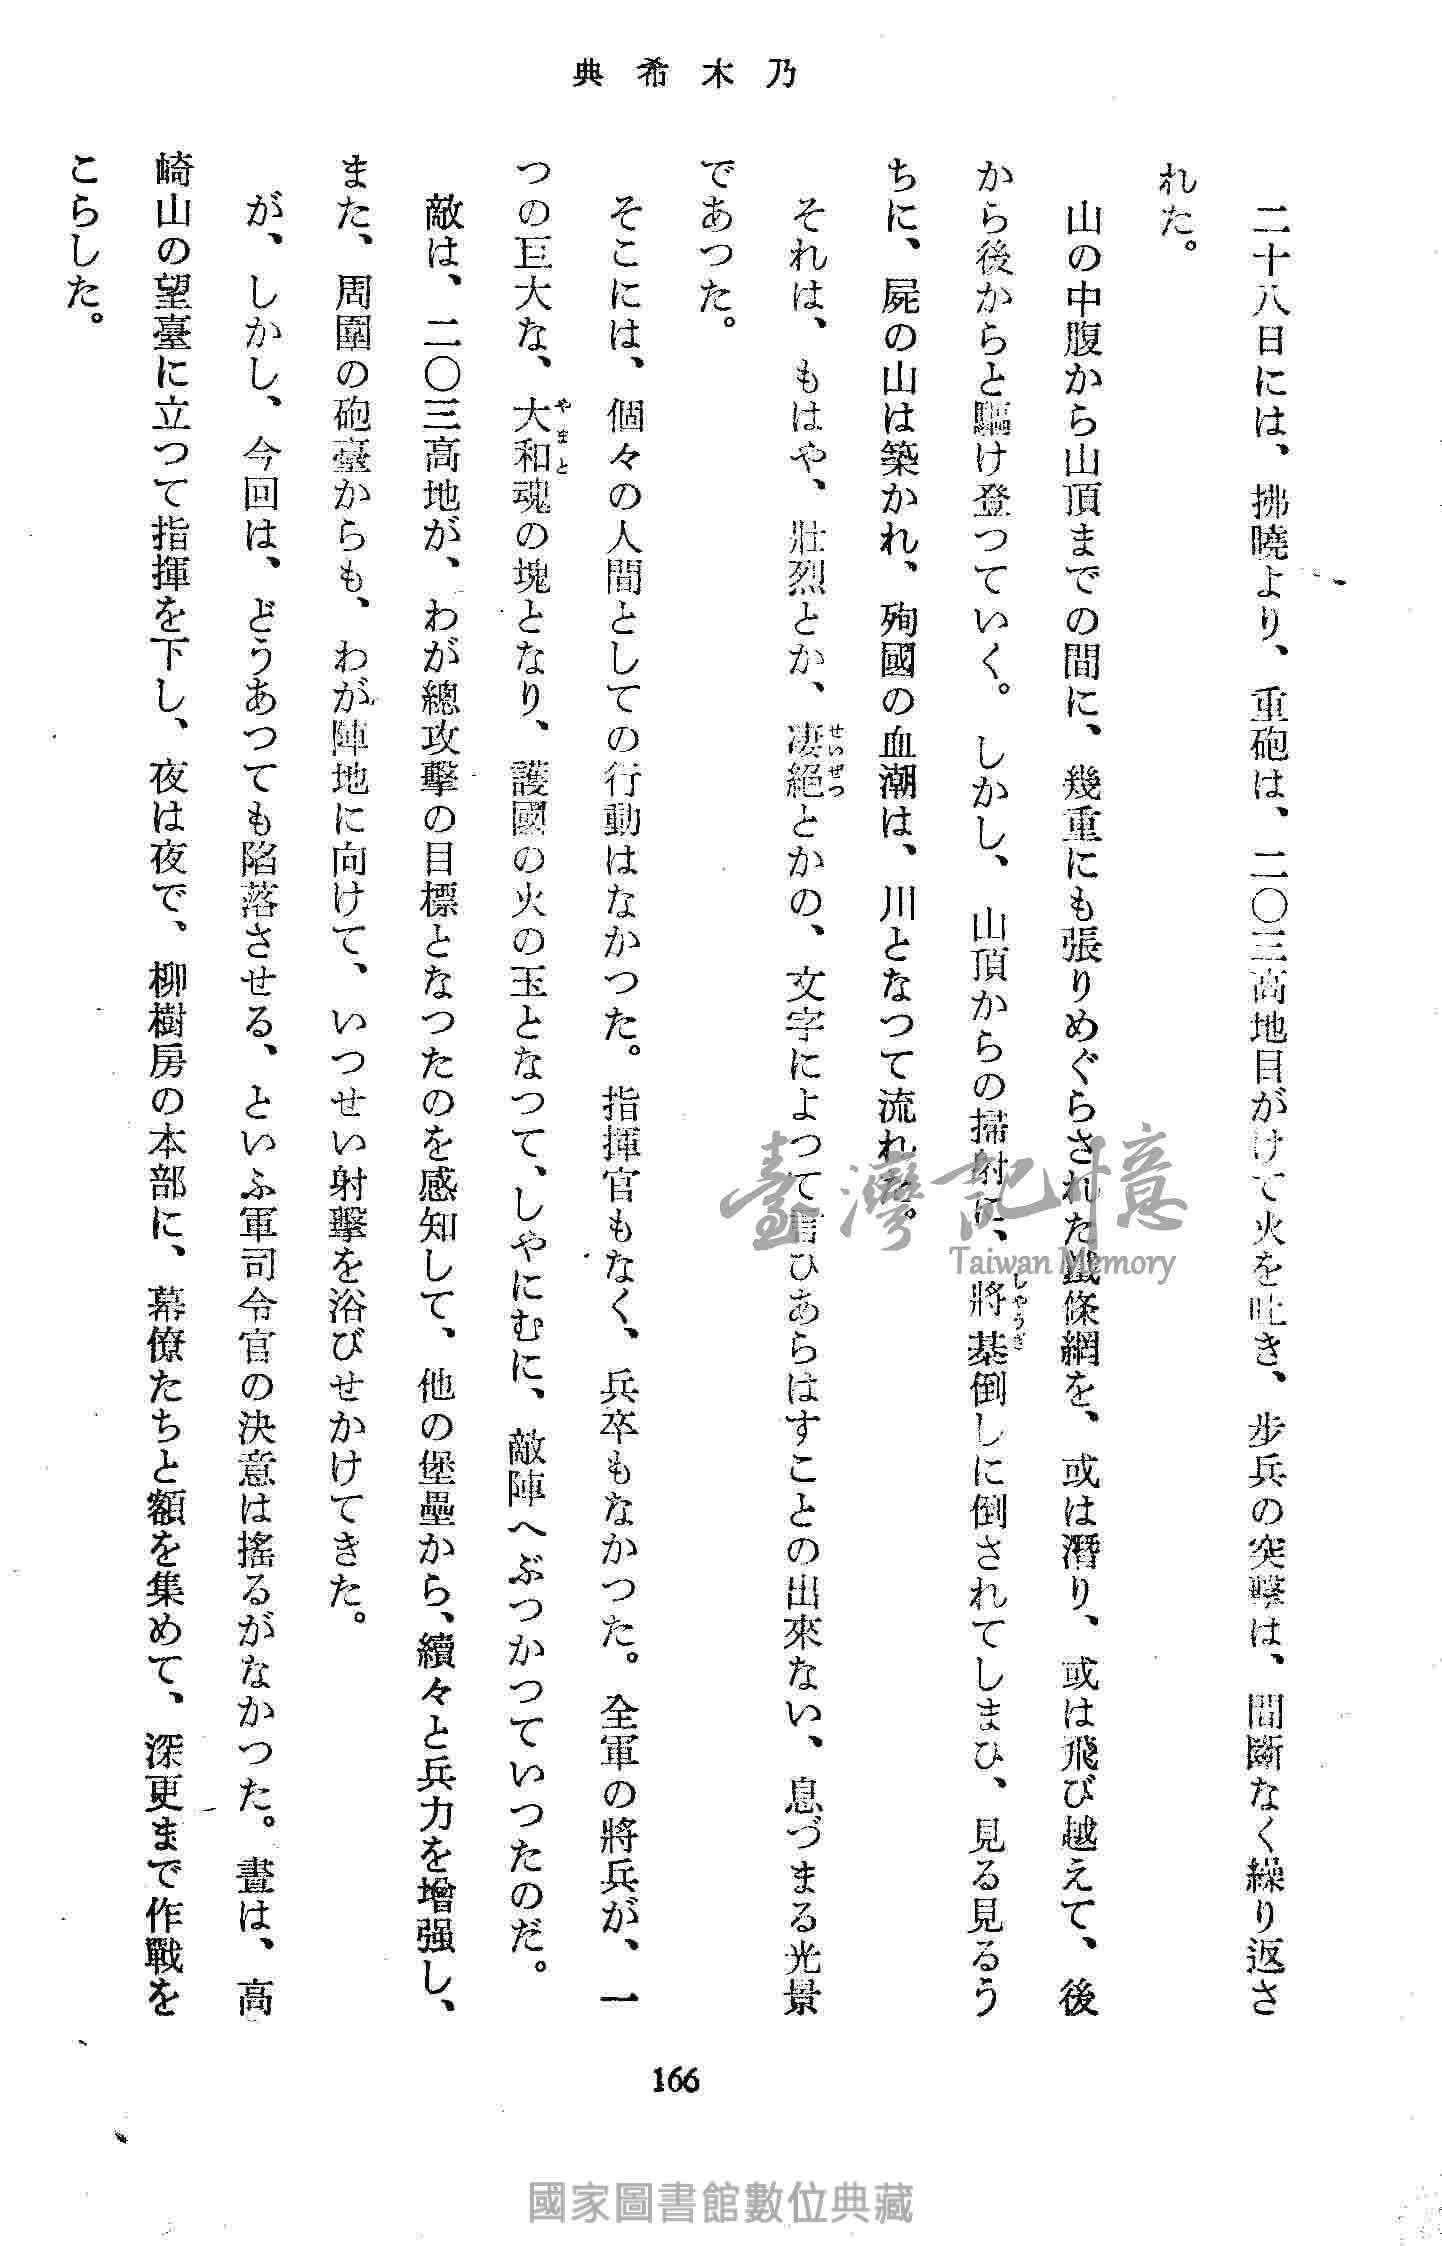 乃木希典
二十八日には、拂曉より、重砲は、二〇三高地目がけて火を吐き、步兵の突擊は、間斷なく繰り返さ
れた。
山の中腹から山頂までの間に、幾重にも張りめぐらされた鐵條網を、或は潛り、或は飛び越えて、後
から後からと驅け登つていく。しかし、山頂からの掃射に、將棊倒しに倒されてしまひ、見る見るう
しやうぎ
ちに、屍の山は築かれ、殉國の血潮は、川となつて流れた。
それは、もはや、壯烈とか、凄絕とかの、文字によつて言ひあらはすことの出來ない、息づまる光景
せいぜつ
であつた。
そこには、個々の人間としての行動はなかつた。指揮官もなく、兵卒もなかつた。全軍の將兵が、一
つの巨大な、大和魂の塊となり、護國の火の玉となつて、しやにむに、敵陣へぶつかつていつたのだ。
やまと
敵は、二〇三高地が、わが總攻擊の目標となつたのを感知して、他の堡壘から、續々と兵力を增强し、
また、周圍の砲臺からも、わが陣地に向けて、いつせい射擊を浴びせかけてきた。
が、しかし、今回は、どうあつても陷落させる、といふ軍司令官の決意は搖るがなかつた。晝は、高
崎山の望臺に立つて指揮を下し、夜は夜で、柳樹房の本部に、幕僚たちと額を集めて、深更まで作戰を
こらした。
166
臺灣記憶
Taiwan Memory
國家圖書館數位典藏